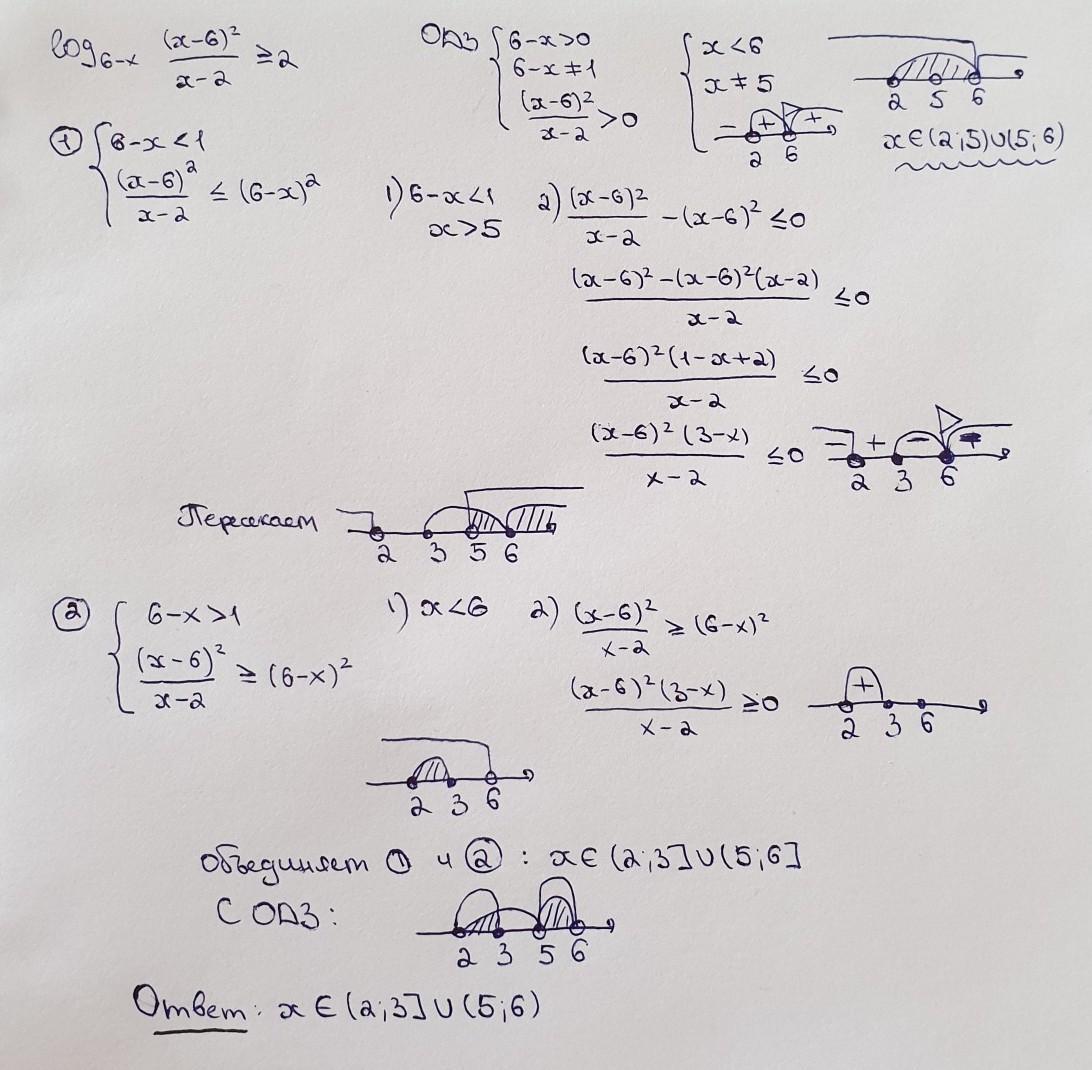 log₆₋ₓ (x-6)²/(x-2) ≥ 2
ОДЗ { 6-x>0
6-x≠1
(x-6)²/(x-2) > 0
{ x<6
x≠5
- + +
2 6
2 5 6
x∈(2;5)∪(5;6)
① { 6-x<1
(x-6)²/(x-2) ≤ (6-x)²
1) 6-x<1
x>5
2) (x-6)²/(x-2) - (x-6)² ≤0
((x-6)²-(x-6)²(x-2))/(x-2) ≤0
((x-6)²(1-x+2))/(x-2) ≤0
((x-6)²(3-x))/(x-2) ≤0
- + - -
2 3 6
Пересекаем
2 3 5 6
② { 6-x>1
(x-6)²/(x-2) ≥ (6-x)²
1) x<6
2) (x-6)²/(x-2) ≥ (6-x)²
((x-6)²(3-x))/(x-2) ≥0
+
2 3 6
2 3 6
Объединяем ① и ② : x∈(2;3]∪(5;6]
С ОДЗ:
2 3 5 6
Ответ: x∈(2;3]∪(5;6)